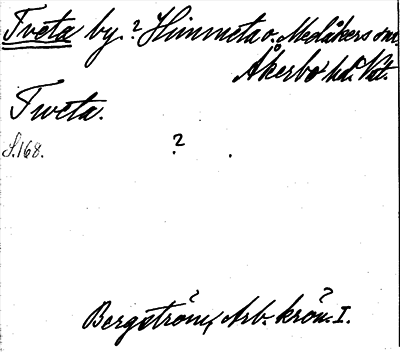 Tveta by. ? Himmeta o. Medåkers snr.
Åkerbo hd. Vstm.
Tweta.
S. 168.
?
Bergström, Arb. krön. I.